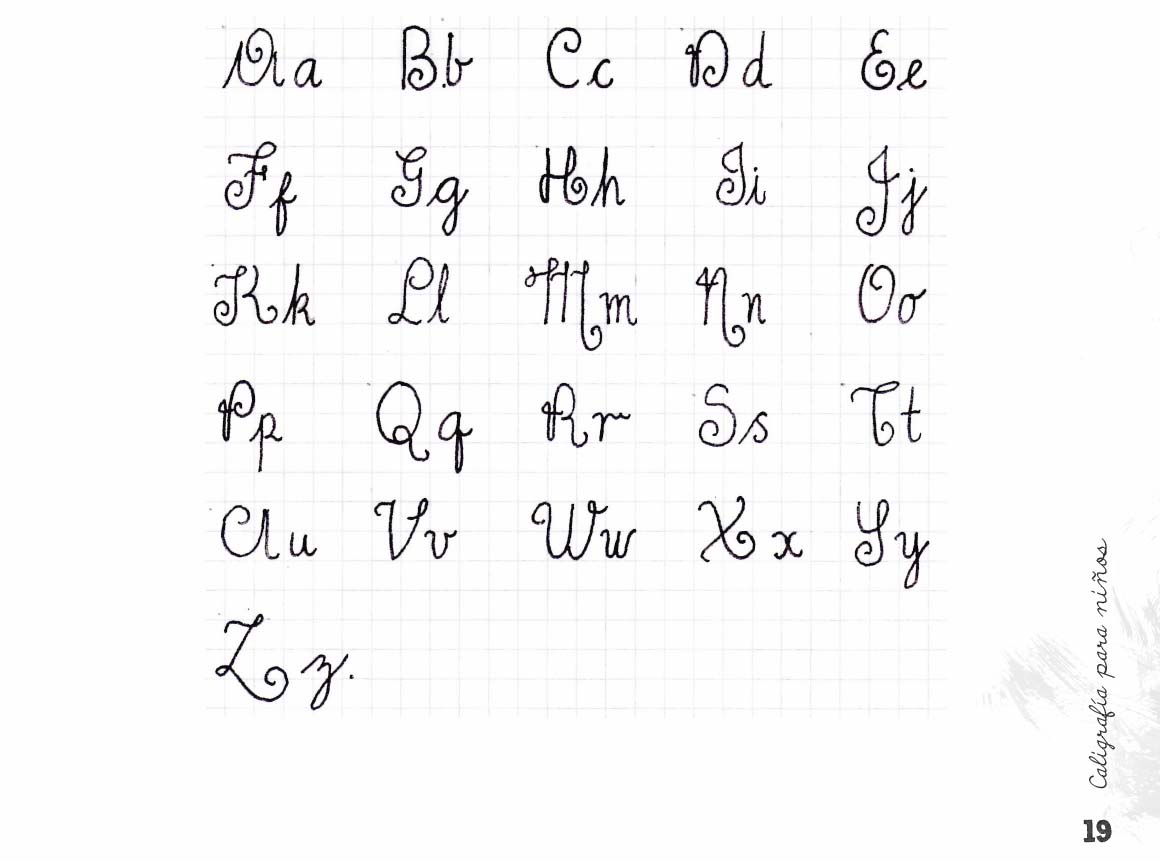 Aa Bb Cc Dd Ee
Ff Gg Hh Ii Jj
Kk Ll Mm Nn Oo
Pp Qq Rr Ss Tt
Uu Vv Ww Xx Yy
Zz.
Caligrafía para niños
19